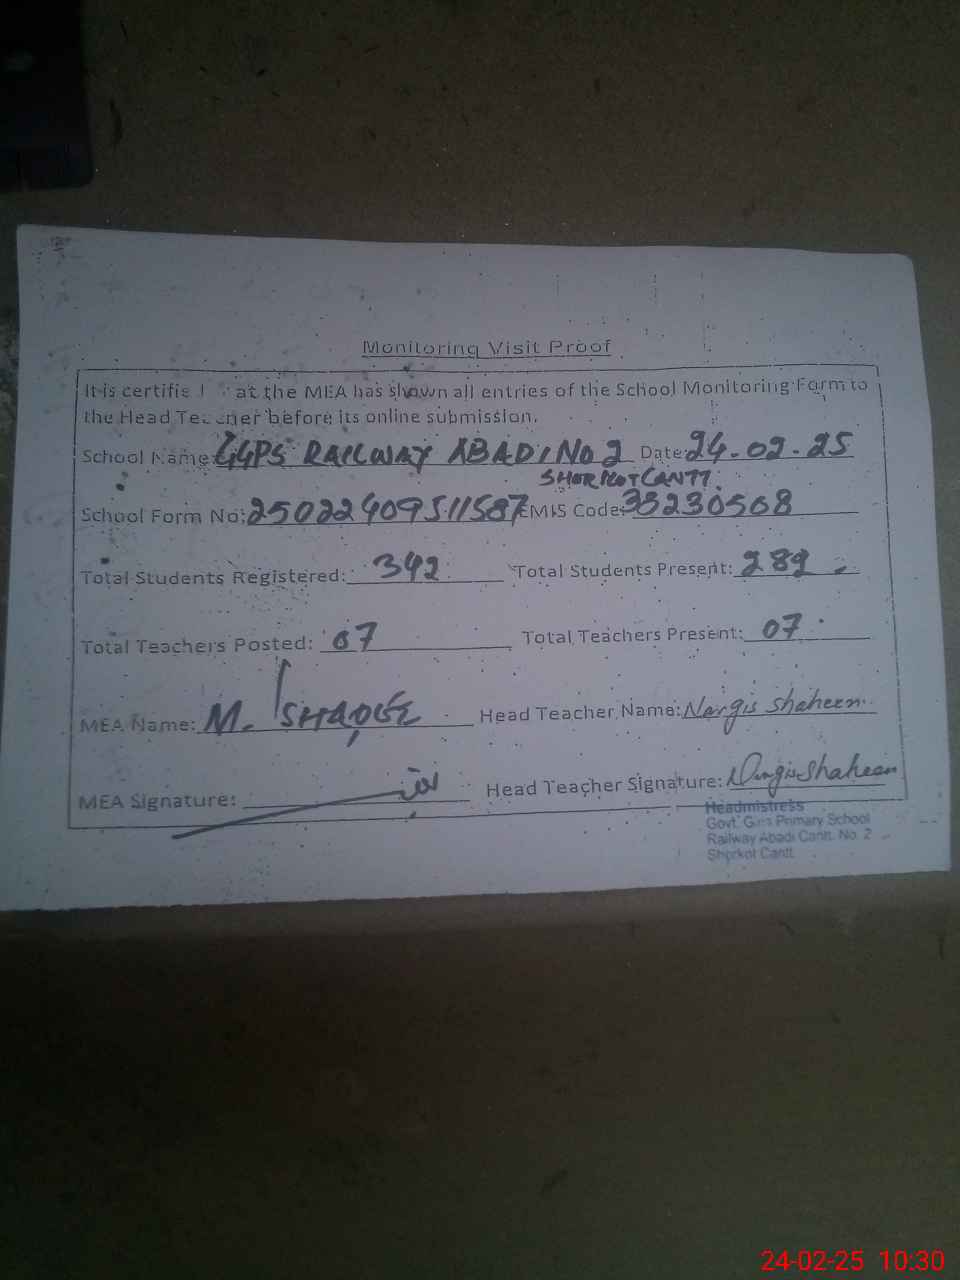 Monitoring Visit Proof
It is certifie at the MEA has shown all entries of the School Monitoring Form to
the Head Teacher before its online submission.
School Name: GGPS RAILWAY ABADI No 2 Date: 24-02-25
SHORKOT CANTT.
School Form No: 25022409511587 EMIS Code: 33230568
Total Students Registered: 342 Total Students Present: 289
Total Teachers Posted: 07 Total Teachers Present: 07
MEA Name: M. Head Teacher Name: Nargis Shaheen
MEA Signature: Head Teacher Signature: Nargis Shaheen
Headmistress
Govt. Girls Primary School
Railway Abadi Cantt. No. 2
Shorkot Cantt.
24-02-25 10:30